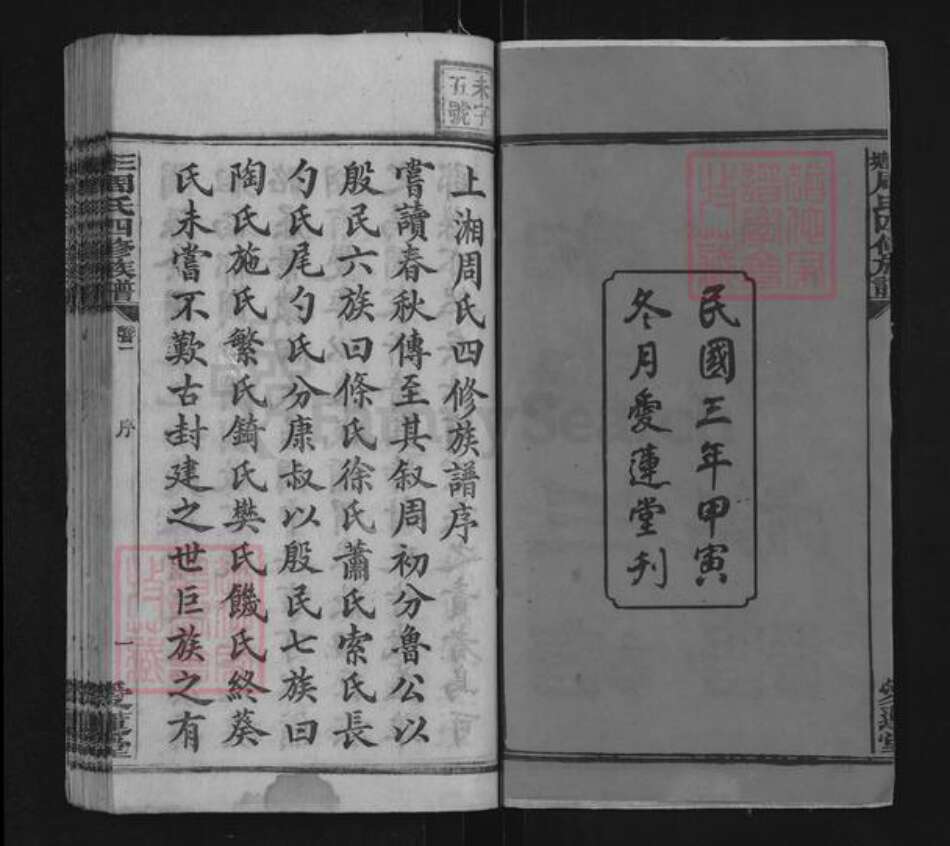 民國三年甲寅
冬月愛蓮堂刋
未字
五號
上湘周氏四修族譜序
嘗讀春秋傳至其叙周初分魯公以
殷民六族曰條氏徐氏蕭氏索氏長
勺氏尾勺氏分康叔以殷民七族曰
陶氏施氏繁氏錡氏樊氏饑氏終葵
氏未嘗不歎古封建之世巨族之有
周氏四修族譜
序
一
愛蓮堂